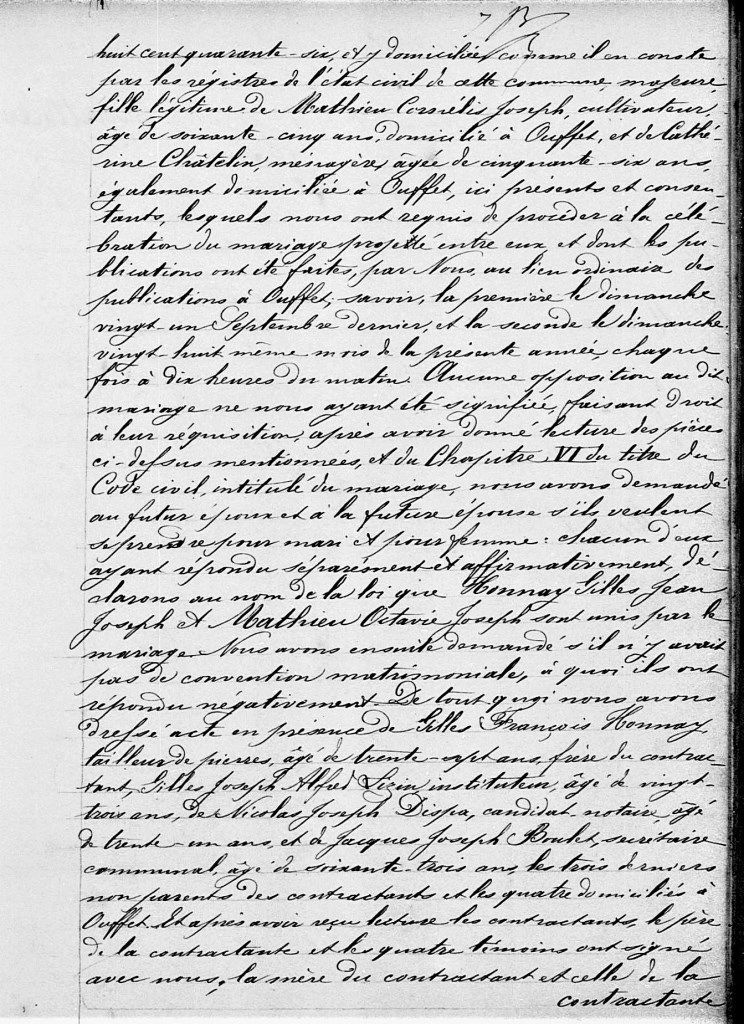 huit cent quarante-six, et y domiciliée, comme il en conste
par les régistres de l'état civil de cette commune, majeure,
fille légitime de Mathieu Cornélis Joseph, cultivateur,
âgé de soixante-cinq ans, domicilié à Ouffet, et de Cathé-
rine Châtelin, ménagère, âgée de cinquante-six ans,
également domiciliée à Ouffet, ici présents et consen-
tants, lesquels nous ont requis de procéder à la célé-
bration du mariage projetté entre eux et dont les pu-
blications ont été faites, par Nous, au lieu ordinaire des
publications à Ouffet, savoir, la première le dimanche
vingt-un Septembre dernier, et la seconde le dimanche
vingt-huit même mois de la présente année, chaque
fois à dix heures du matin. Aucune opposition au dit
mariage ne nous ayant été signifiée, faisant droit
à leur réquisition, après avoir donné lecture des pièces
ci-dessus mentionnées, et du Chapitre VI du titre du
Code civil, intitulé du mariage, nous avons demandé
au futur époux et à la future épouse s'ils veulent
se prendre pour mari et pour femme : chacun d'eux
ayant répondu séparément et affirmativement, dé-
clarons au nom de la loi que Honnay Gilles Jean
Joseph et Mathieu Octavie Joseph sont unis par le
mariage. Nous avons ensuite demandé s'il n'y avait
pas de convention matrimoniale, à quoi ils ont
répondu négativement. De tout quoi nous avons
dressé acte en présence de Gilles François Honnay,
tailleur de pierres, âgé de trente-sept ans, frère du contrac-
tant, Gilles Joseph Alfred instituteur, âgé de vingt-
trois ans, de Nicolas Joseph Dispa, candidat notaire, âgé
de trente-un ans, et de Jacques Joseph Boulet, secrétaire
communal, âgé de soixante-trois ans, les trois derniers
non parents des contractants et les quatre domiciliés à
Ouffet. Et après avoir reçu lecture les contractants, le père
de la contractante et les quatre témoins ont signé
avec nous, la mère du contractant et celle de la
contractante